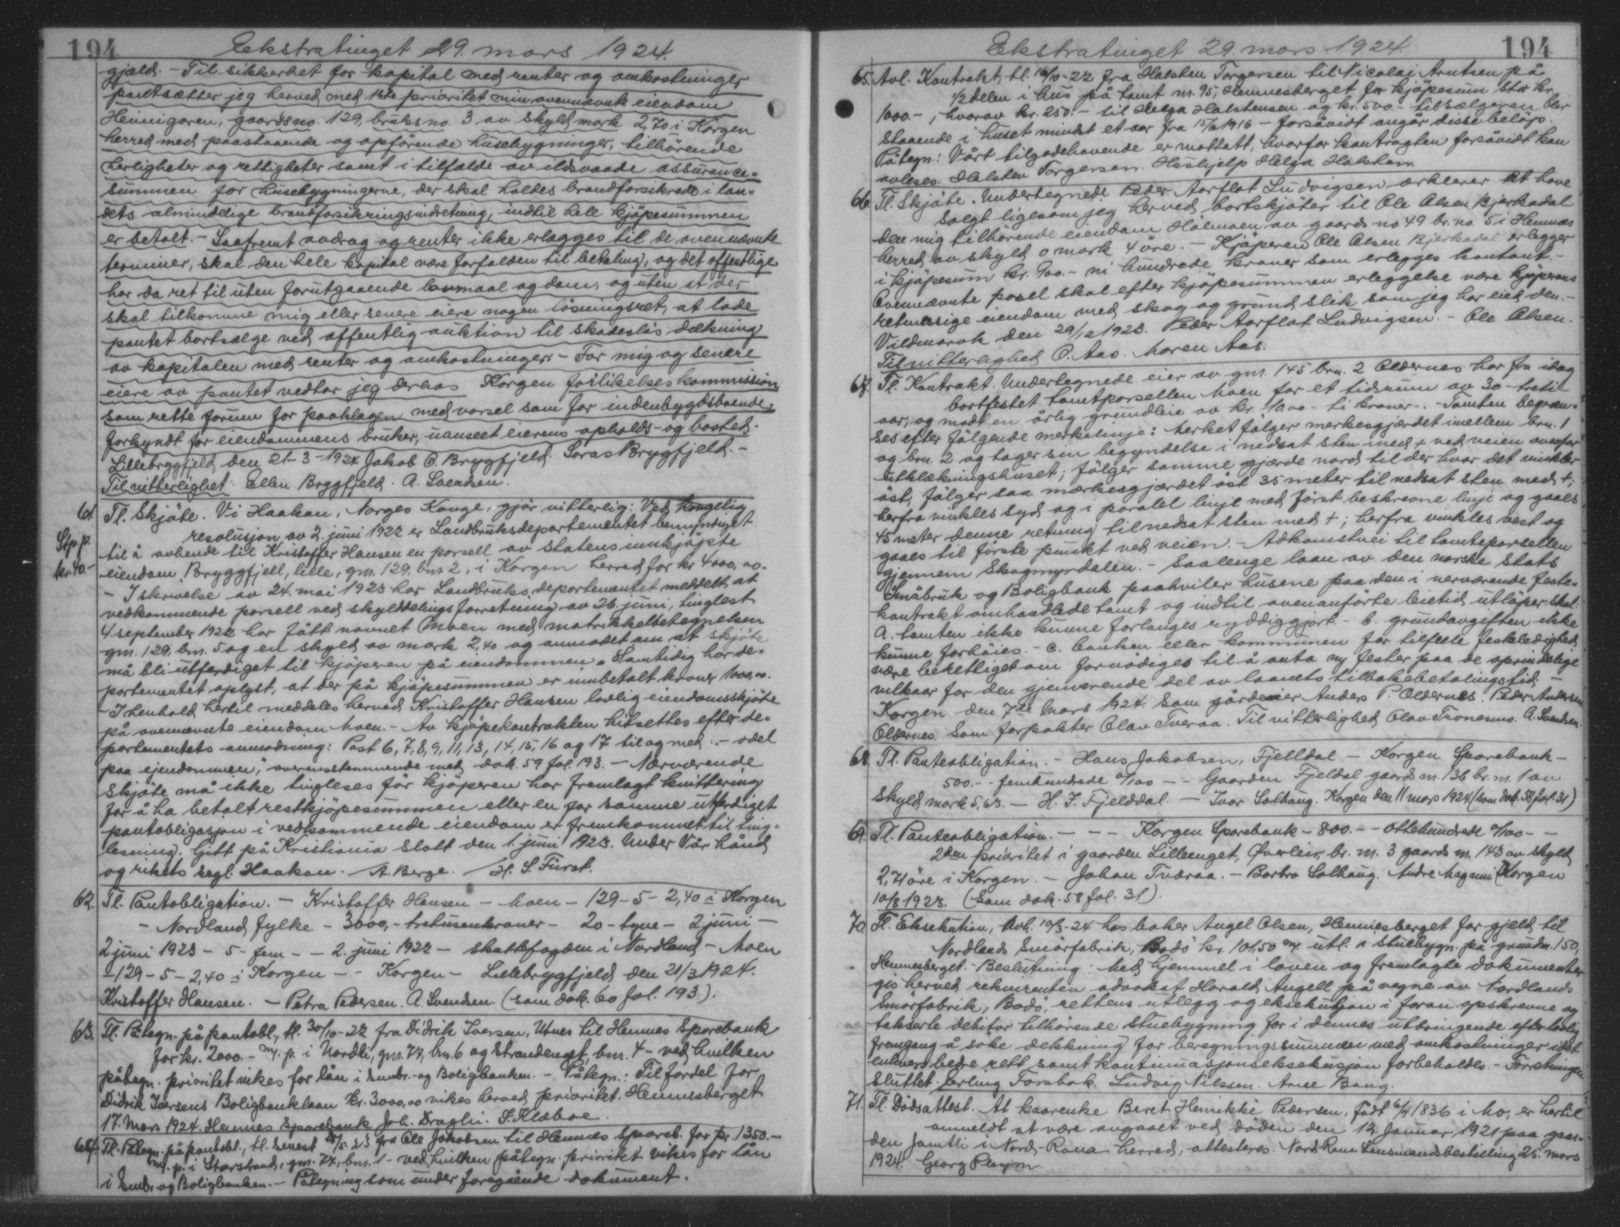 194 Ekstratinget 29. mars 1924.
gjæld. - Til sikkerhet for kapital med renter og omkostninger
pantsætter jeg herved med 1ste prioritet min ovennævnte eiendom
Heinigoren, gaardsno. 129, bruksno. 3 av skyld mark 2,70 i Korgen
herred med paastaaende og opførende husebygninger, tilhørende
herligheter og rettigheter samt i tilfælde av ildsvaade assurance-
summen for husebygningerne, der skal holdes brandforsikrede i lan-
dets almindelige brandforsikringsindretning, indtil hele kjøpesummen
er betalt. - Saafremt avdrag og renter ikke erlægges til de ovennævnte
terminer, skal den hele kapital være forfalden til betaling, og det offentlige
har da ret til uten forutgaaende lovmaal og dom, og uten at der
skal tilkomme mig eller senere eiere nogen løsningsret, at lade
pantet bortsælge ved offentlig auktion til skadesløs dækning
av kapitalen med renter og omkostninger. - For mig og senere
eiere av pantet vedtar jeg derhos Korgen forlikelseskommission
som rette forum for paaklagen med varsel som for indenbygdsboende,
forkyndt for eiendommens bruker, uanseet eierens opholds- og bosted.
Lillebryggfjeld den 21-3-1924 Jakob C. Bryggfjeld. Soras Bryggfjeld. -
Til vitterlighet: Ellen Bryggfjeld. A. Svendsen.
61. Tl. Skjøte. Vi Haakon, Norges Konge, gjør vitterlig: Ved kongelig
resolusjon av 2. juni 1922 er Landbruksdepartementet bemyndiget
Stp. p. kr. 40.-
til å avhende til Kristoffer Hansen en porsell av statens innkjøpte
eiendom Bryggfjell, lille, gnr. 129, bnr. 2, i Korgen herred for kr. 4000,00.
- I skrivelse av 24. mai 1923 har Landbruksdepartementet meddelt, at
vedkommende porsell ved skylddelingsforretning av 26. juni, tinglest
4 september 1922 har fått navnet Moen med matrikkelbetegnelsen
gnr. 129, bnr. 5 og en skyld av mark 2,40 og anmodet om at skjøte
må bli utferdiget til kjøperen på eiendommen. Samtidig har de-
partementet oplyst, at der på kjøpesummen er innbetalt kroner 1000,00.
- I henhold hertil meddeles herved Kristoffer Hansen lovlig eiendomsskjøte
på ovennevnte eiendom Moen. - Av kjøpekontrakten hitsettes efter de-
partementets anmodning: Post 6, 7, 8, 9, 11, 13, 14, 15, 16 og 17 til og med - odel
paa ejendommen", overensstemmende med dok. 59 fol. 193. - Nærværende
skjøte må ikke tingleses før kjøperen har fremlagt kvittering
for å ha betalt restkjøpesummen eller en for samme utferdiget
pantobligasjon i vedkommende eiendom er fremkommet til ting-
lesning. Gitt på Kristiania slott den 1. juni 1923. Under Vår hånd
og rikets segl. Haakon. A. Berge. H. S. Fürst.
62. Tl. Pantobligation. - Kristoffer Hansen - Moen - 129 - 5 - 2,40 i Korgen
- Nordland fylke - 3000,- tretusenkroner - 20 - tyve - 2 juni -
2 juni 1923 - 5 - fem - - 2. juni 1922 - skattefogden i Nordland - Moen
- 129 - 5 - 2,40 i Korgen - - Korgen - Lillebryggfjeld den 21/3 1924.
Kristoffer Hansen. - Petra Pedersen. A. Svendsen (som dok. 60 fol. 193).
63. Tl. Påtegn. på pantobl., tl. 30/10-22 fra Didrik Iversen, Utnes til Hemnes Sparebank
for kr. 2000.- m. p. i Nordli, gnr. 77, bnr. 6 og Strandenget, bnr. 4 - ved hvilken
påtegn. prioritet vikes for lån i Småbr.- og Boligbanken. - Påtegn.: Til fordel for
Didrik Iversens Boligbanklaan kr. 3000,00 vikes herved prioritet. Hemnesberget
17. Mars 1924. Hemnes Sparebank Joh. Dragli. S. Klaboe.
64. Tl. Påtegn. på pantobl., tl. senest /5-23 fra Ole Jakobsen til Hemnes Spareb. for kr. 1350.-
m. p. i Storstrand, gnr. 77, bnr. 1 - ved hvilken påtegn. prioritet vikes for lån
i Småbr. og Boligbanken. - Påtegning som under foregående dokument.
Ekstratinget 29 mars 1924. 194
65. Avl. Kontrakt, tl. 16/10-22 fra Halsten Torgersen til Nicolai Arntsen på
1/2 delen i hus på tomt nr. 95, Hemnesberget for kjøpesum stor kr.
1000.-, hvorav kr. 250.- til Helga Halstensen og kr. 500.- til sælgeren blir
staaende i huset mindst et aar fra 15/2 1916 - forsåvidt angår disse beløp.
Påtegn.: Vårt tilgodehavende er mottatt, hvorfor kontragten forsåvidt kan
avleses. Halsten Torgersen. Hushjelp Helga Halstein.
66. Tl. Skjøte. Undertegnede Peder Aarflot Ludvigsen erklærer at have
solgt ligesom jeg herved bortskjøter til Ole Olsen Bjerkadal
den mig tilhørende eiendom Holmoen av gaards no 49 br. no. 5 i Hemnes
herred av skyld 0 mark 4 øre. - Kjøperen Ole Olsen Bjerkadal erlægger
i kjøpesum kr. 900.- ni hundrede kroner som erlægges kontant. -
Ovennævnte posel skal efter kjøpesummens erlæggelse være kjøperens
retmæssige eiendom med skog og grund slik som jeg har eied den. -
Vildmarok den 29/12 1923. Peder Aarflot Ludvigsen - Ole Olsen.
Til vitterlighed O. Aas. Maren Aas.
67. Tl. Kontrakt. Undertegnede eier av gnr. 145 brn. 2 Oldernes har fra idag
bortfestet tomtporsellen Moen for et tidsrum av 30 - treti -
aar, og mot en årlig grundleie av kr. 10.00 - ti kroner -. - Tomten begræn-
ses efter følgende merkelinje: herket følger merkesgjærdet imellem brn. 1
og brn. 2 og tager sin begyndelse i nedsat sten med x ved veien ovenfor
utklækningshuset; følger samme gjærde nord til der hvor det vinkler
øst, følger saa mærkesgjærdet øst 35 meter til nedsat sten med +,
herfra vinkles syd og i paralel linje med først beskrevne linje og gaaes
45 meter denne retning til nedsat sten med +; herfra vinkles vest og
gaaes til første punkt ved veien. - Adkomstvei til tomteporsellen
gjennem Skogmyrdalen. - Saalenge laan av den norske Stats
Småbruk og Boligbank paahviler husene paa den i nerværende feste-
kontrakt omhandlede tomt og indtil ovenanførte leietid utløper skal:
a. tomten ikke kunne forlanges ryddiggjort - b. grundavgiften ikke
kunne forhøies. - c. banken eller kommunen før tilfelle festeledighed
være berettiget om fornødiges til å anta ny fester paa de oprindelige
vilkaar for den gjenværende del av laanets tilbakebetalingstid. -
Korgen den 7de Mars 1924. Som gårdeier Anders P Oldernes. Peder Andersen
Oldernes. Som forpakter Olav Tveraa. Til vitterlighed Olav Tronesmo. A. Svendsen.
68. Tl. Panteobligation. - Hans Jakobsen, Fjelldal - Korgen Sparebank -
500.- femhundrede 0/100 - - Gaarden Fjeldal gaards nr. 136 br. nr. 1 av
Skyld mark 5,63. - H. J. Fjelddal. - Ivar Solbaug. Korgen den 11 mars 1924 (som dok. 58 fol. 31)
69. Tl. Panteobligation. - - - Korgen Sparebank - 800.- - Ottehundrede 0/100 - -
2den prioritet i gaarden Lilleenget, Øverleir, br. nr. 3 gaards nr. 143 av skyld
2,71 øre i Korgen. - Johan Tværaa. - Barbro Solbaug. Andre Korgen
10/8 1923. (Som dok. 58 fol. 31).
70. Tl. Eksekution, avh. 19/3-24 hos baker Angel Olsen, Hemnesberget for gjeld til
Nordlands Smørfabrik, Bodø kr. 101.50 m. utl. i stuebygn. på grundnr. 150,
Hemnesberget. Beslutning: Med hjemmel i loven og fremlagte dokumenter
gis herved rekvirenten advokat Harald Angell på vegne av Nordlands
Smørfabrik, Bodø, rettens utlegg og eksekutjon i foran opskrevne og
takserte debitor tilhørende stuebygning for i dennes utbringende efter lovlig
fremgang å søke dekkning for beregningssummen med omkostninger i det
enhvers bedre rett samt kontinuasjonseksekusjon forbeholdes. - Forretningen
sluttet. Erling Forsbak. Ludvig Nilssen. Arne Bang.
71. Tl. Dødsattest. At kaarenke Beret Henrikke Pedersen, født 6/4 1836 i Mo, er hertil
anmeldt at være avgaaet ved døden den 13 Januar 1921 paa gaar-
den Jamtli i Nord-Rana herred, attesteres. Nord-Rana Lensmandsbestilling 25. mars
1924. Georg Pleym.